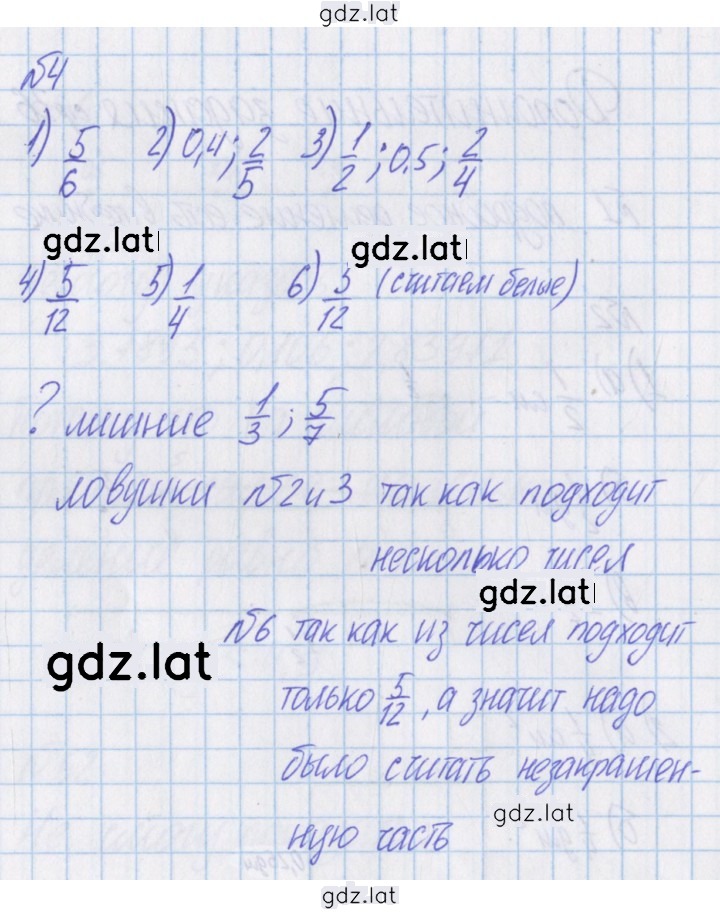 gdz.lat
№4
1) 5/6 2) 0,4; 2/5 3) 1/2; 0,5; 2/4
gdz.lat gdz.lat
4) 5/12 5) 1/4 6) 5/12 (считаем белые)
? лишние 1/3; 5/7
ловушки №2 и 3 так как подходит
несколько чисел
gdz.lat
№6 так как из чисел подходит
gdz.lat
только 5/12, а значит надо
было считать незакрашен-
gdz.lat
ную часть
gdz.lat